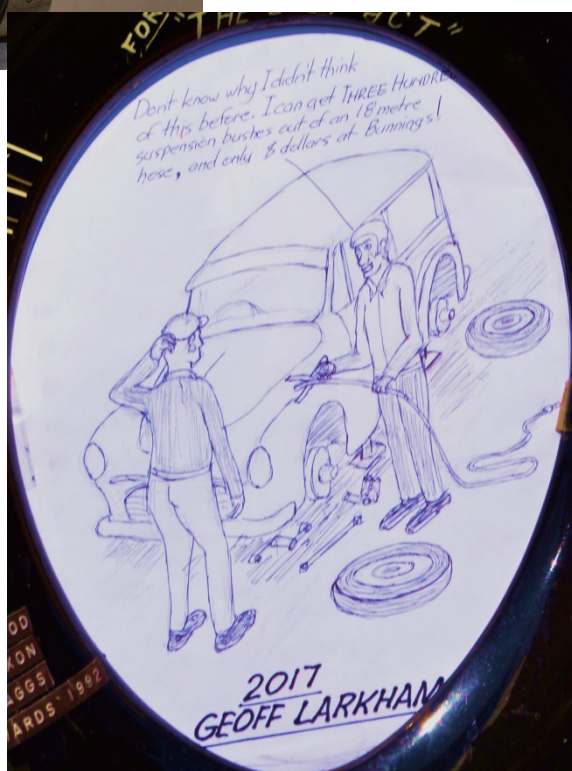 FOR
"THE
ACT"
Dont know why I didn't think
of this before. I can get THREE HUNDRE
suspension bushes out of an 18 metre
hose, and only 8 dollars at Bunnings!
2017
GEOFF LARKHAM
OD
XON
AGGS
ARDS 1992